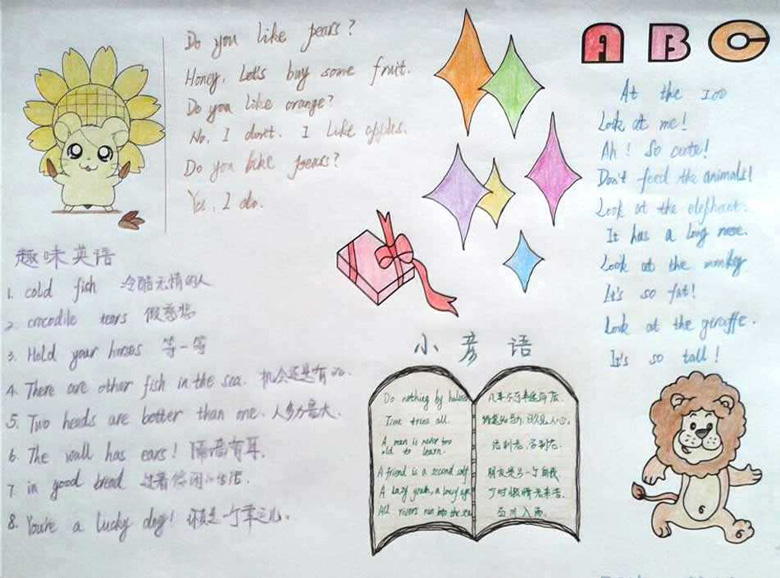 Do you like pears?
Honey, Let's buy some fruit.
Do you like orange?
No, I don't. I like apples.
Do you like pears?
Yes, I do.
ABC
At the zoo
Look at me!
Ah! So cute!
Don't feed the animals!
Look at the elephant.
It has a long nose.
Look at the monkey
It's so fat!
Look at the giraffe.
It's so tall!
趣味英语
1. cold fish 冷酷无情的人
2. crocodile tears 假慈悲
3. Hold your horses 等一等
4. There are other fish in the sea. 机会还是有的.
5. Two heads are better than one. 人多力量大.
6. The wall has ears! 隔墙有耳.
7. in good bread 过着悠闲的生活
8. You're a lucky dog! 你真是一个幸运儿.
小彦语
Do nothing by halves
Time tries all. 日久见人心.
A man is never too
old to learn. 活到老, 学到老.
A friend is a second self. 朋友是另一个自我
A lazy youth, a lousy age
All rivers run into the sea